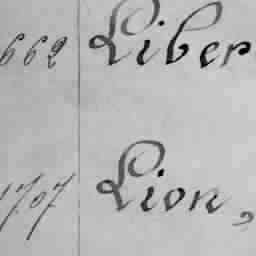 662 Liber
1707 Lion,